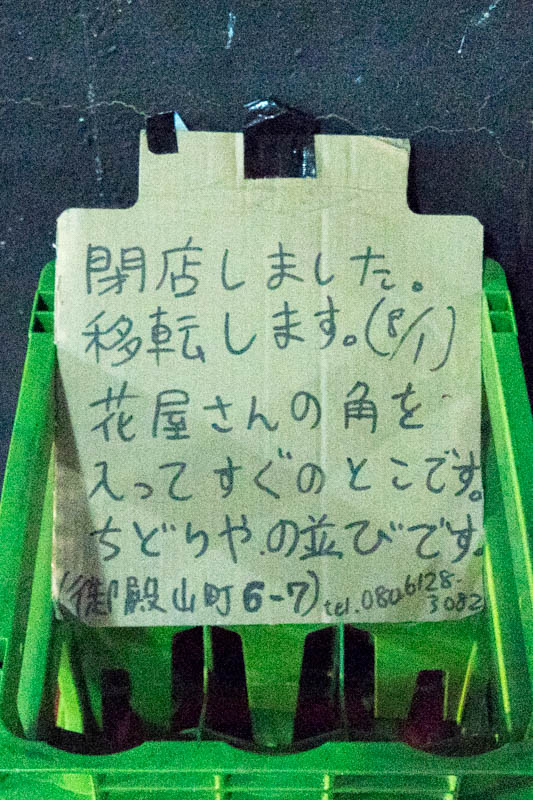 閉店しました。
移転します。(8/1)
花屋さんの角を
入ってすぐのとこです。
ちどりや.の並びです。
(御殿山町6-7) tel.080 6128-
3082